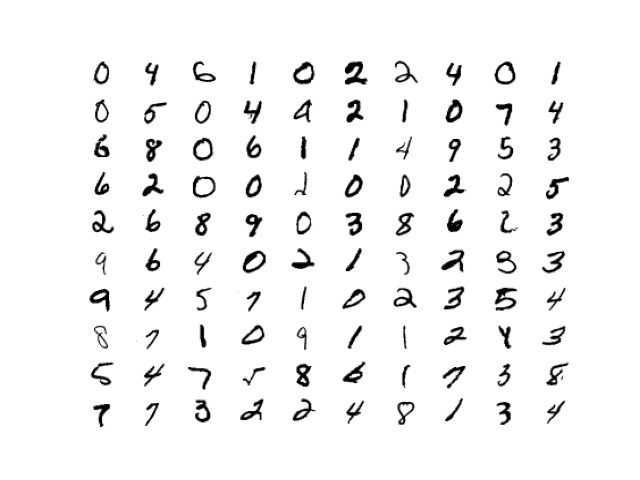 0 4 6 1 0 2 2 4 0 1
0 5 0 4 4 2 1 0 7 4
6 8 0 6 1 1 4 9 5 3
6 2 0 0 2 0 0 2 2 5
2 6 8 9 0 3 8 6 2 3
9 6 4 0 2 1 3 2 3 3
9 4 5 7 1 0 2 3 5 4
8 7 1 0 9 1 1 2 4 3
5 4 7 5 8 6 1 7 3 8
7 7 3 2 2 4 8 1 3 4